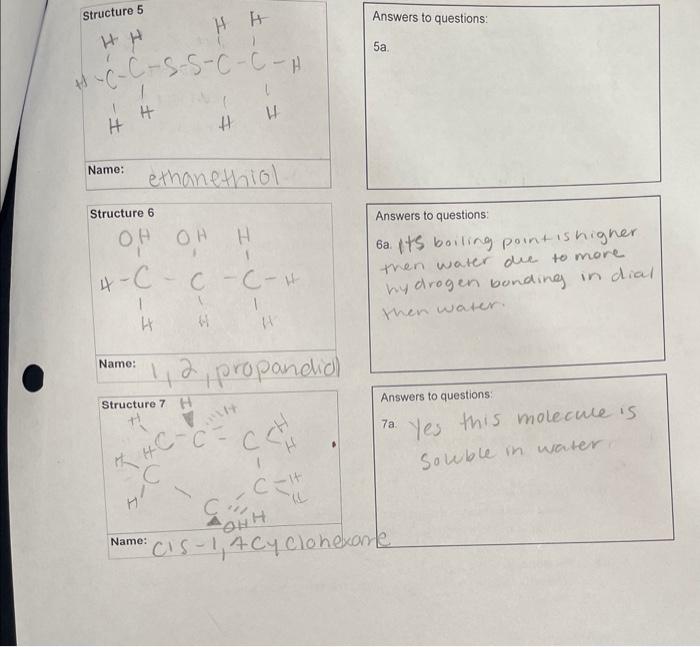 Structure 5
H H H H
H-C-C-S-S-C-C-H
H H H H
Name: ethanethiol
Answers to questions:
5a.
Structure 6
OH OH H
H-C-C-C-H
H H H
Name: 1,2,propandiol
Answers to questions:
6a. Its boiling point is higher
then water due to more
hydrogen bonding in dial
then water.
Structure 7 H
H H
C-C-C H
H H H
C C-H
H H
C
OH H
Name: cis-1,4cyclohexane
Answers to questions:
7a. Yes this molecule is
Soluble in water